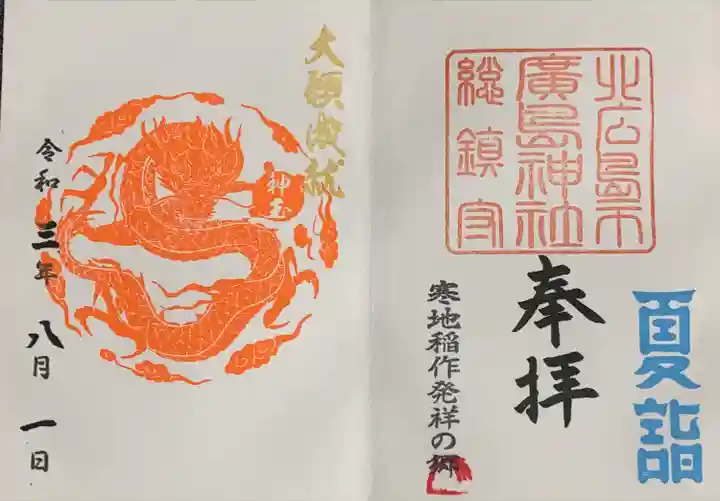 夏詣
北広島市
廣島神社
総鎮守
奉拝
寒地稲作発祥の郷
大願成就
神玉
令和三年八月一日